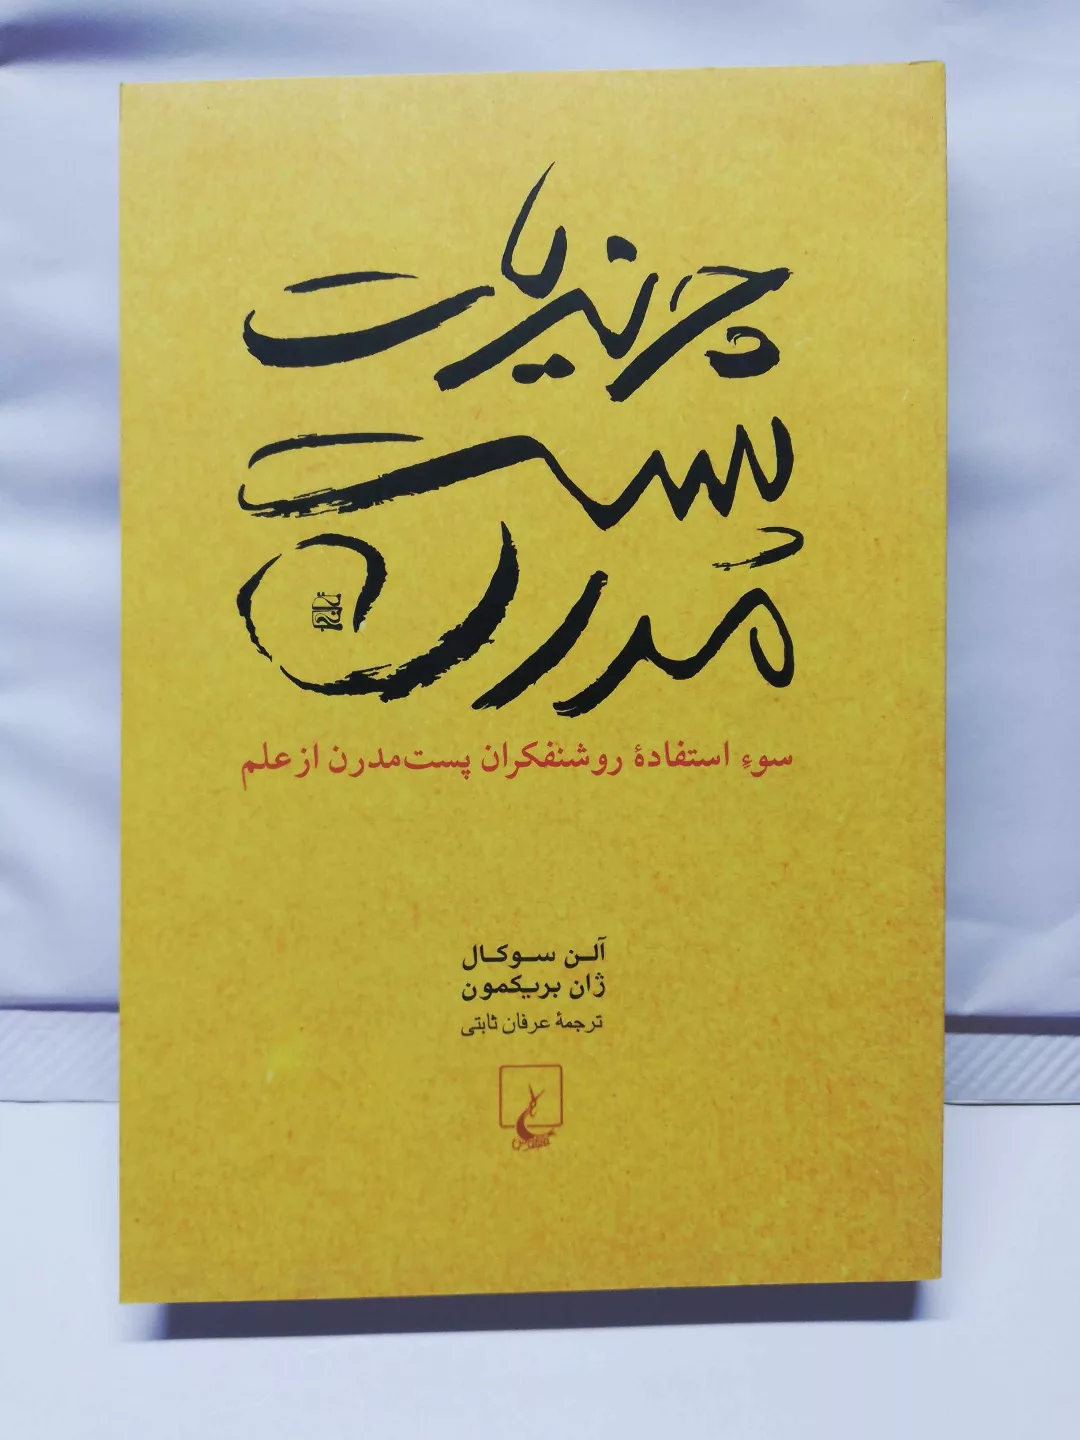 چرندیات
پست
مُدرن
سوءِ استفادهٔ روشنفکران پست‌مدرن از علم
آلن سوکال
ژان بریکمون
ترجمهٔ عرفان ثابتی
ققنوس